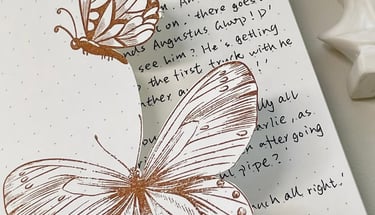 on. there goes
nds Augustus Gloop!D'
see him? He's getting
the first truck with he
ather a
ly all
arlie, as
after going
ul pipe?
uch all right.'